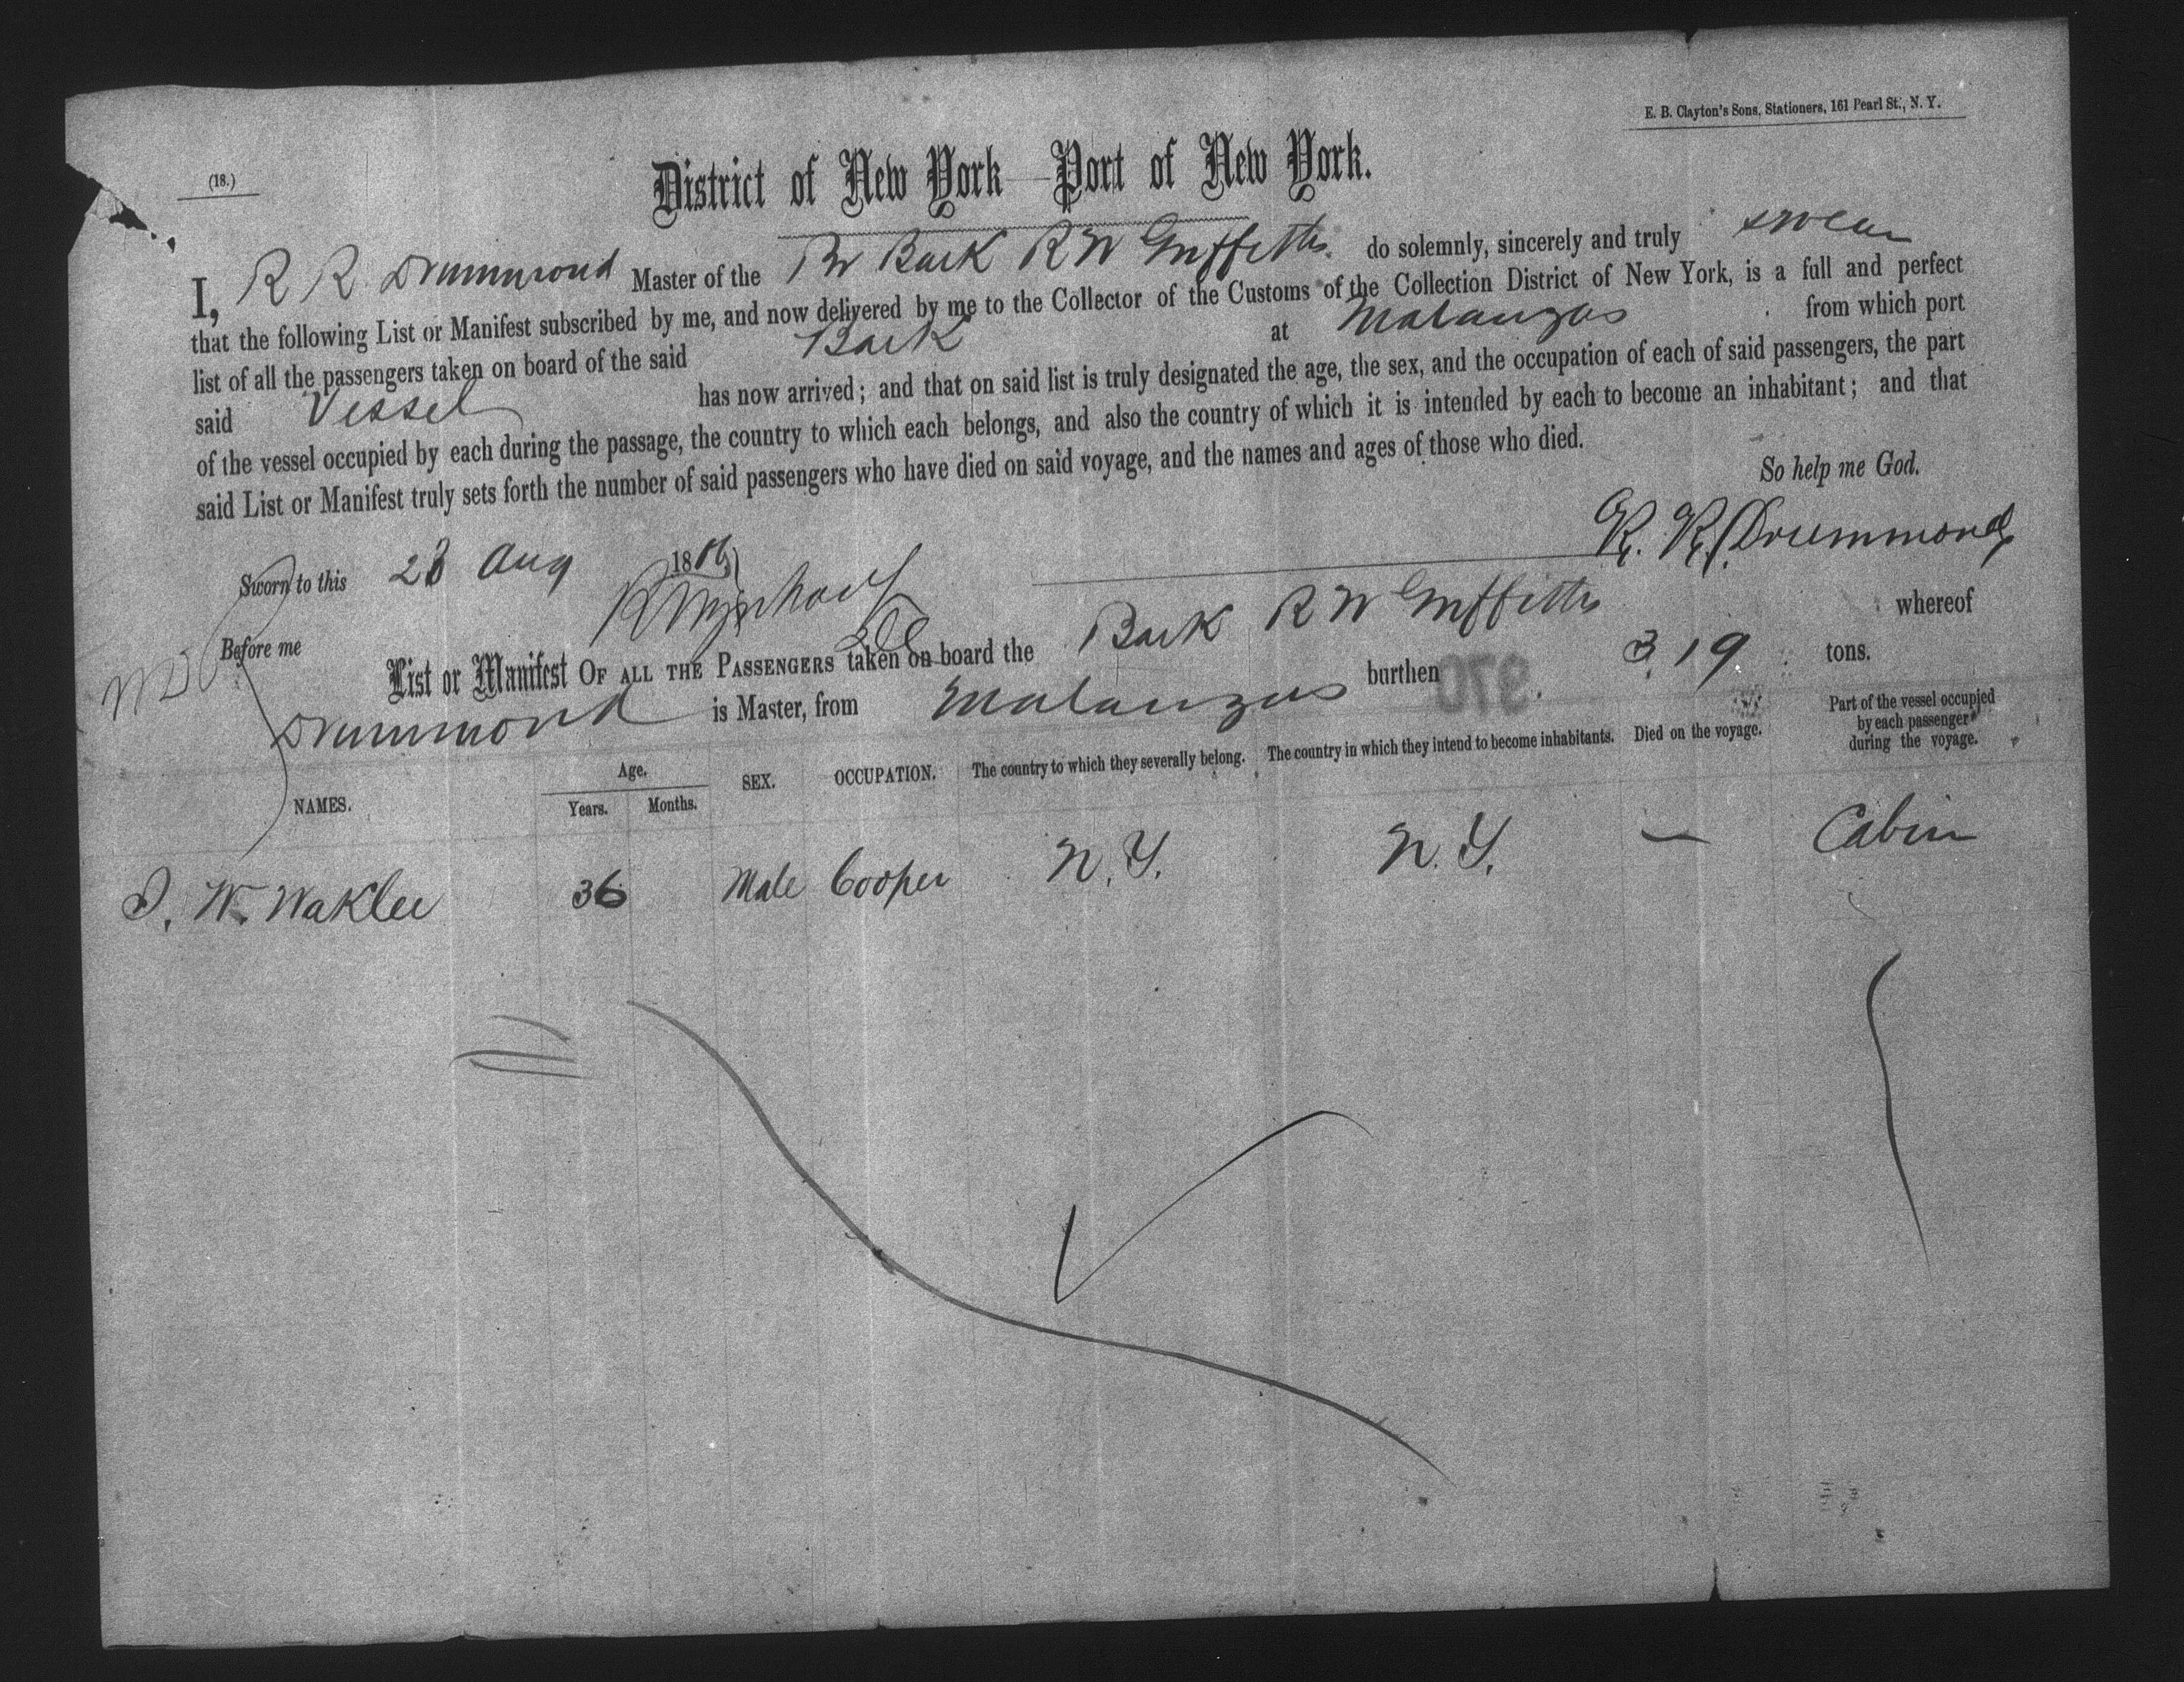 E. B. Clayton's Sons, Stationers, 161 Pearl St., N. Y.
(18.)
District of New York—Port of New York.
I, R R Drummond Master of the Br Bark R W Griffiths. do solemnly, sincerely and truly swear
that the following List or Manifest subscribed by me, and now delivered by me to the Collector of the Customs of the Collection District of New York, is a full and perfect
list of all the passengers taken on board of the said Bark at Matanzas from which port
said Vessel has now arrived; and that on said list is truly designated the age, the sex, and the occupation of each of said passengers, the part
of the vessel occupied by each during the passage, the country to which each belongs, and also the country of which it is intended by each to become an inhabitant; and that
said List or Manifest truly sets forth the number of said passengers who have died on said voyage, and the names and ages of those who died.
So help me God.
R. R. Drummond
Sworn to this 28 Aug 18
Before me
List or Manifest OF ALL THE PASSENGERS taken on board the Bark R W Griffiths whereof
Drummond is Master, from Matanzas burthen 319 tons.
970
NAMES. Age. Years. Months. SEX. OCCUPATION. The country to which they severally belong. The country in which they intend to become inhabitants. Died on the voyage. Part of the vessel occupied by each passenger during the voyage.
W. Waklee 36 Male Cooper N. Y. N. Y. — Cabin